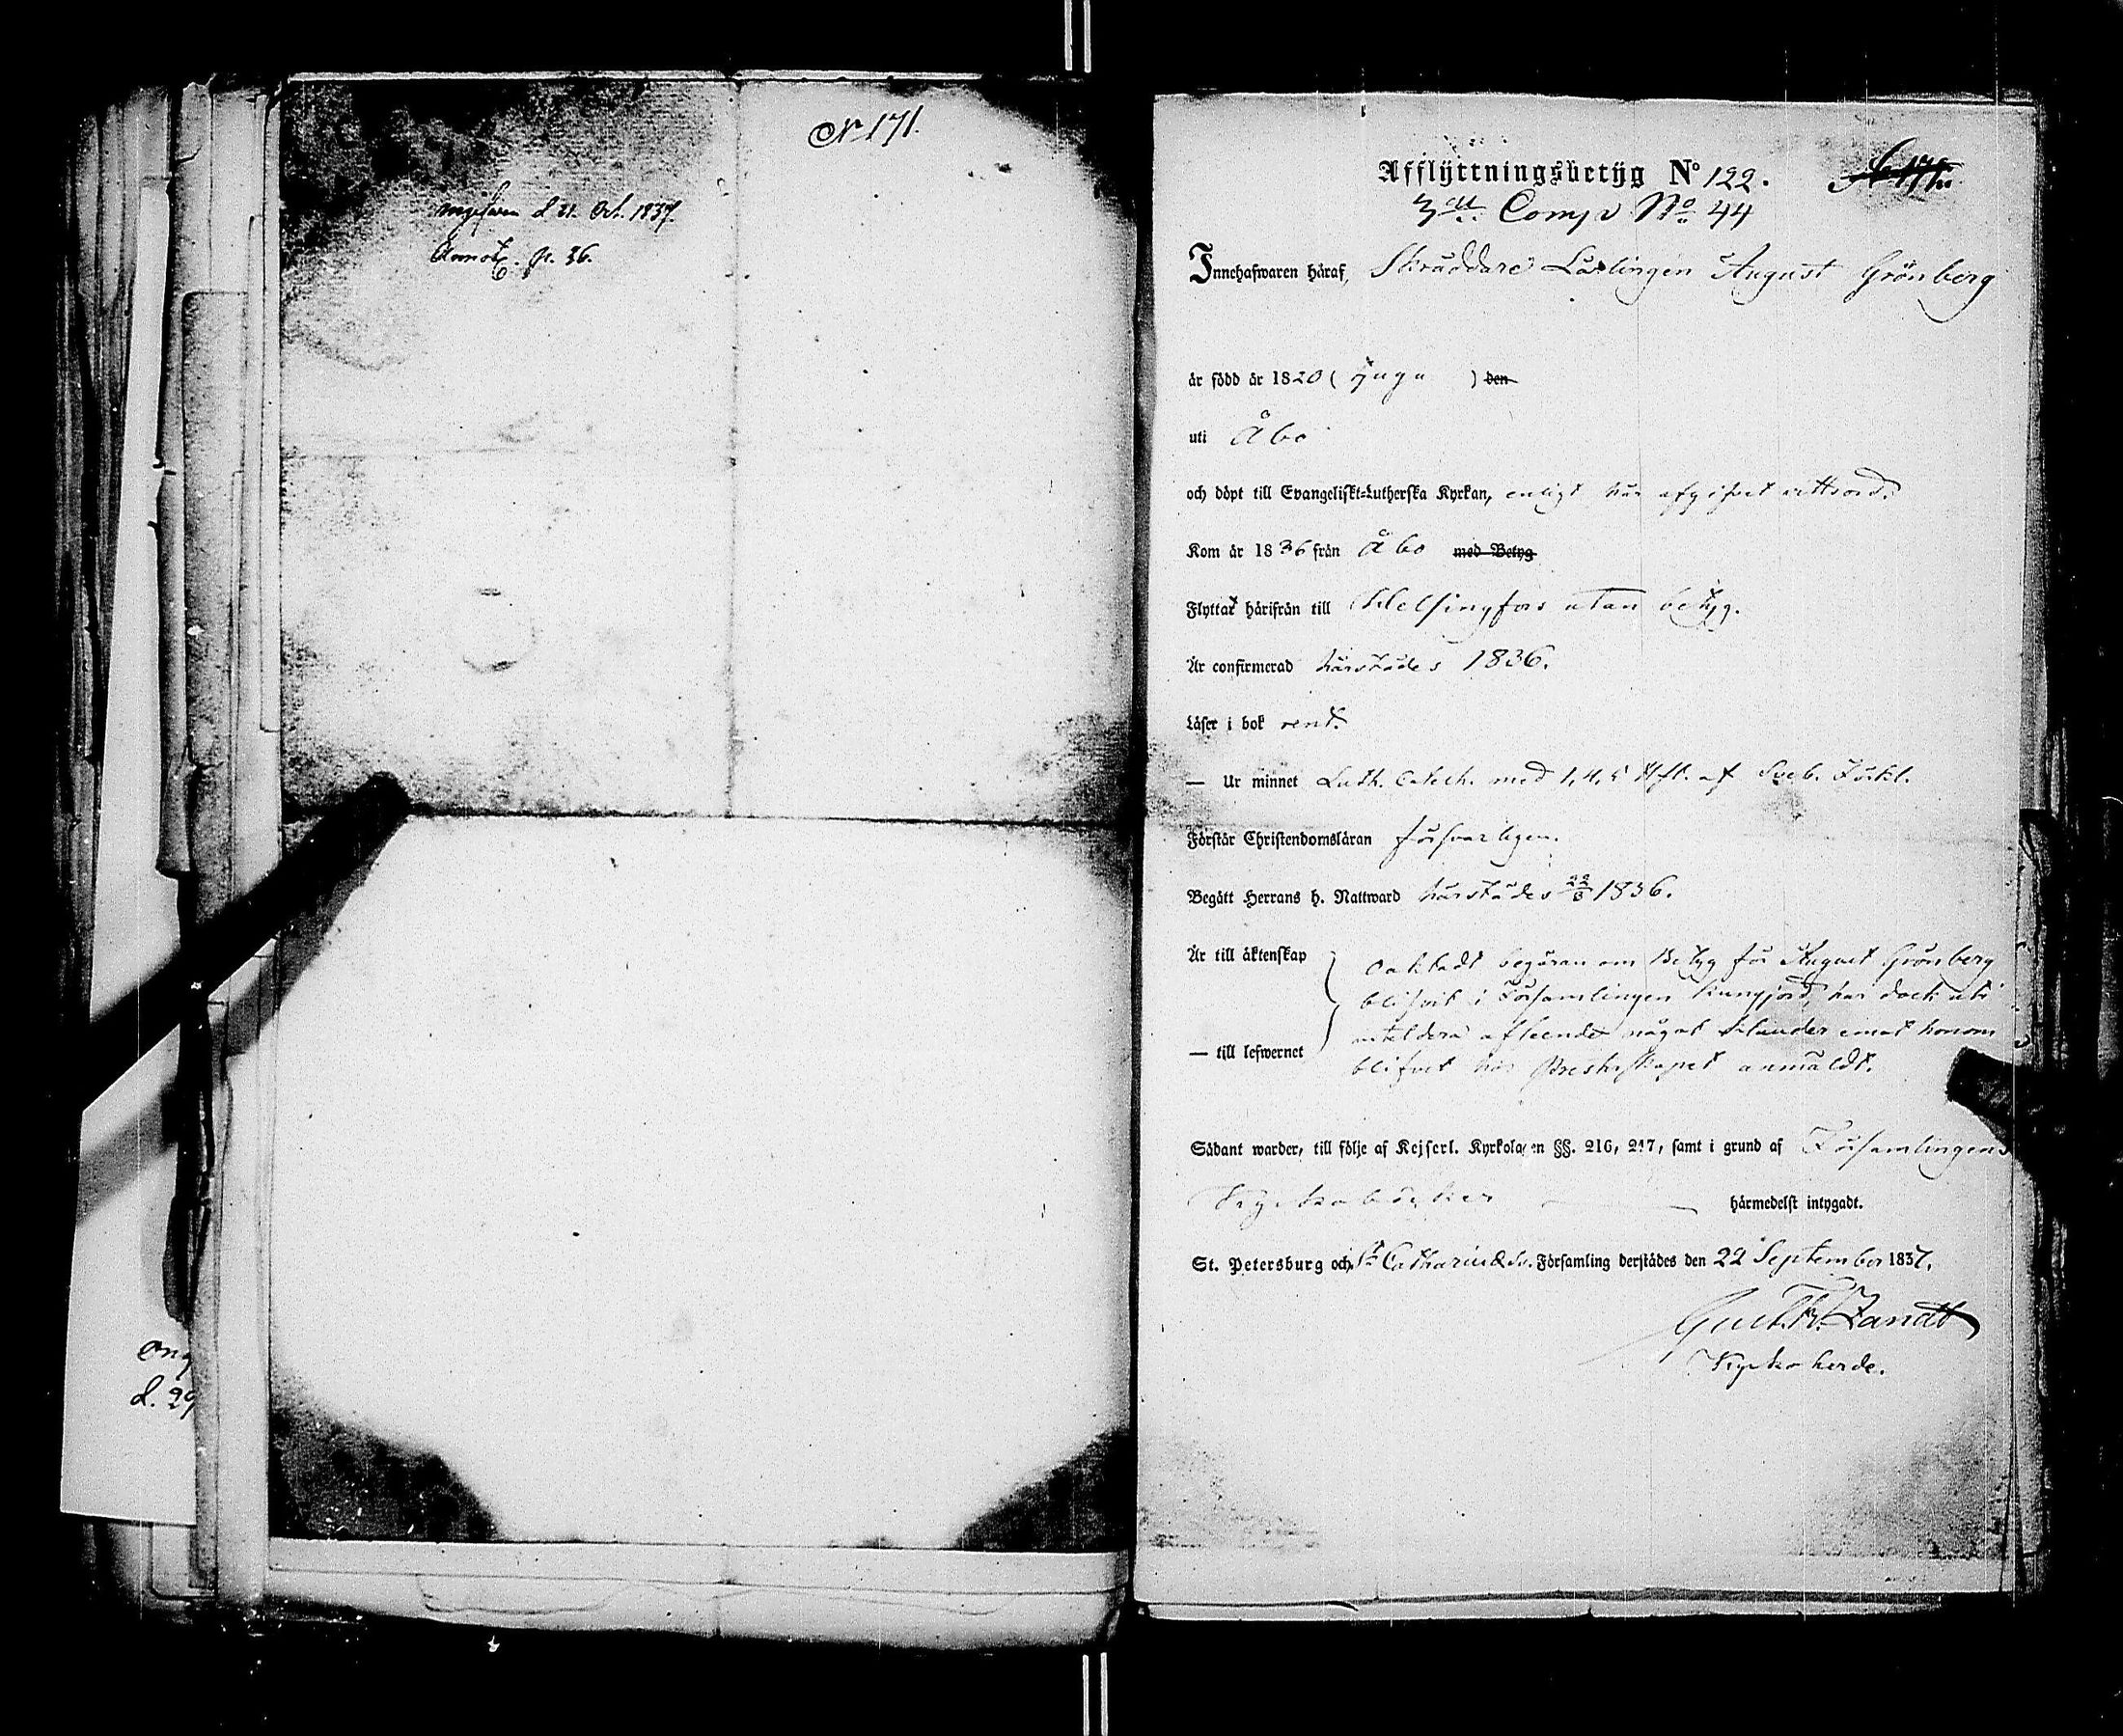 N 171.
d 21. Oct. 1837.
Annot. p. 36.
Ang
d. 29
Afflyttningsbetyg No 122.
Comp. No 44
Innehafwaren häraf, Skräddare Lärlingen August Grönberg
är född år 1820 (tjugu) den
uti Åbo
och döpt till Evangeliskt-Lutherska Kyrkan, enligt här afgifvet vittsord.
Kom år 1836 från Åbo med Betyg
Flyttat härifrån till Helsingfors utan betyg.
Är confirmerad härstädes 1836.
Läser i bok rent.
— Ur minnet Luth. Catech. med 1, 4, 5 af Sveb. Förkl.
Förstår Christendomsläran försvarligen.
Begått Herrans h. Nattward härstädes 1836.
Är till äktenskap
— till lefwernet
Oaktadt begäran om Betyg för August Grönberg
blifvit i Församlingen kungjord, har dock
något hinder emot honom
blifvet hos Presterskapet anmäldt.
Sådant warder, till följe af Kejserl. Kyrkolagen §§. 216, 217, samt i grund af Församlingens
Kyrkoböcker — härmedelst intygadt.
St. Petersburg och St Catharinæ Sv. Församling derstädes den 22 September 1837.
Gust. Fr. Zandt
Kyrkoherde.